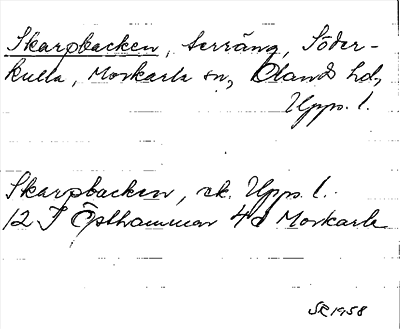 Skarpbacken, terräng, Söder-
kulla, Morkarla sn, Olands hd,
Upps. l.
Skarpbacken, ek. Upps. l.
12 I Östhammar 4 d Morkarla
SR 1958